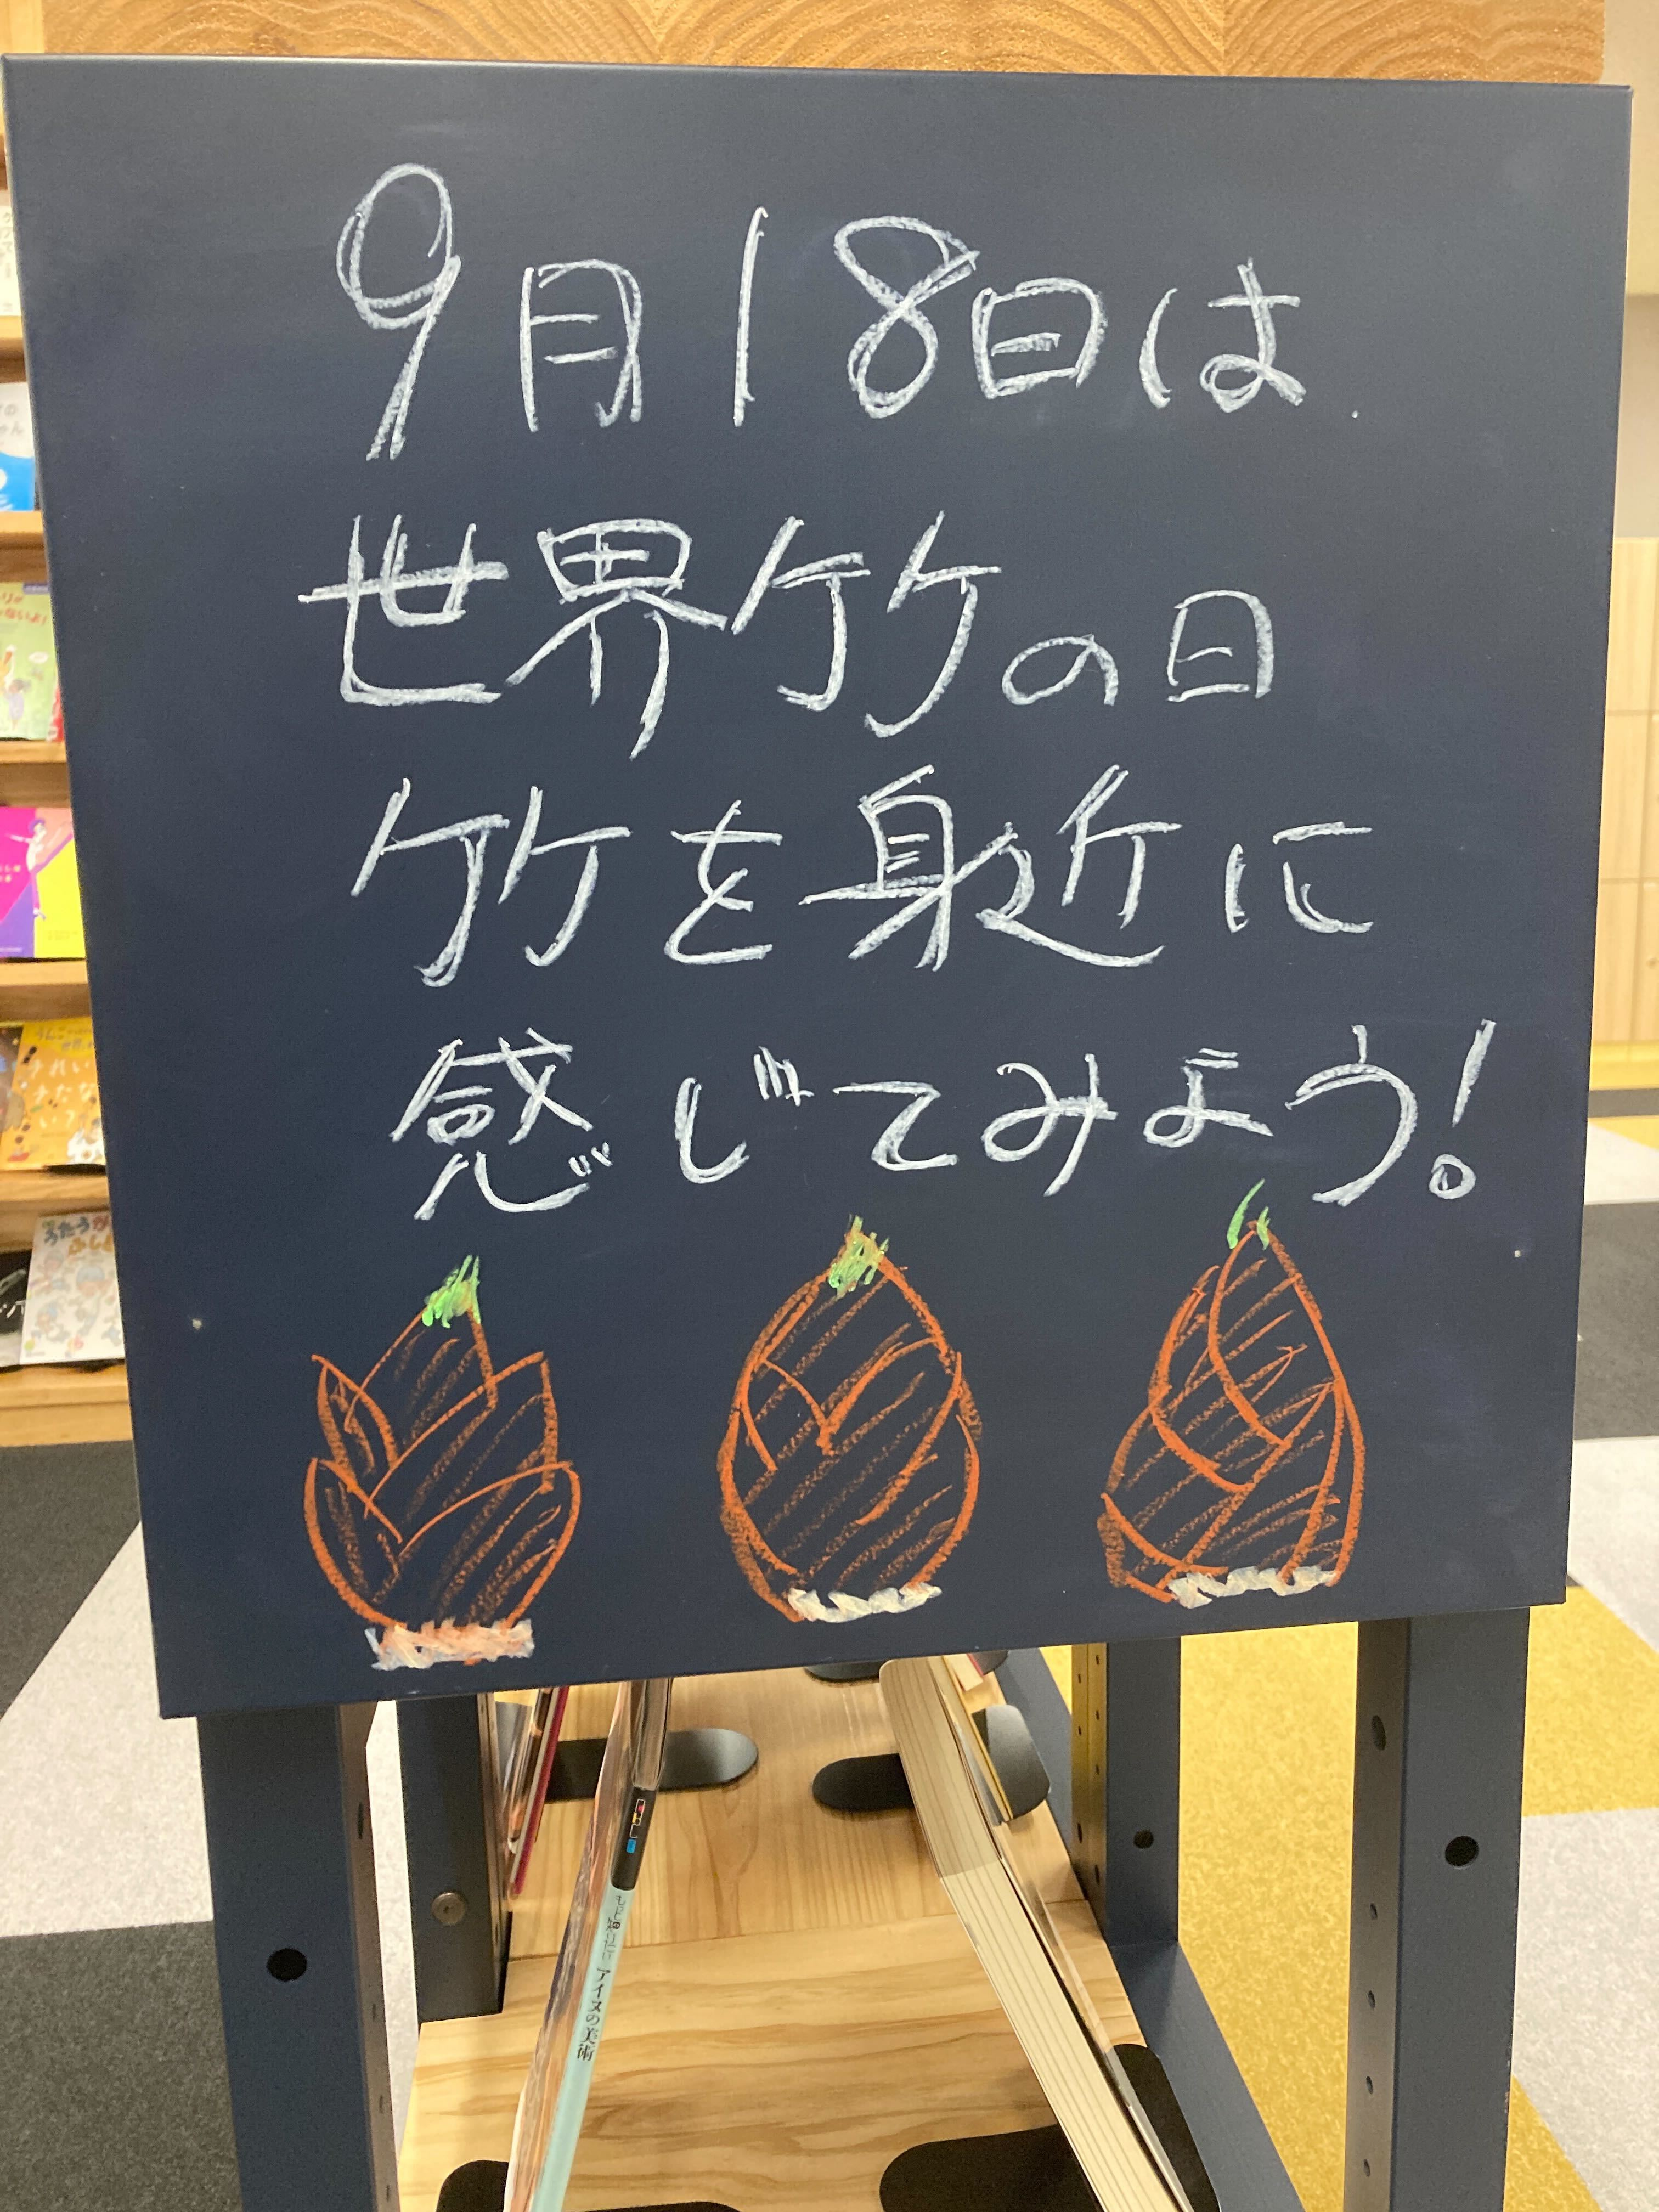 9月18日は
世界竹の日
竹を身近に
感じてみよう!
もっと知りたい アイヌの美術